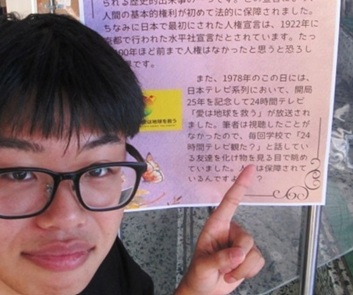 られる歴史的出来事の
人間の基本的権利が初めて法的に保障されました。
ちなみに日本で最初にされた人権宣言は、1922年に
都で行われた水平社宣言だとされています。たっ
00年ほど前まで人権はなかったと思うと恐ろし
です。
また、1978年のこの日には、
日本テレビ系列において、開局
25年を記念して24時間テレビ
「愛は地球を救う」が放送され
ました。筆者は視聴したことが
なかったので、毎回学校で「24
時間テレビ観た？」と話してい
る友達を化け物を見る目で眺め
ていました。
は保障されて
いるんです
？
愛は地球を救う